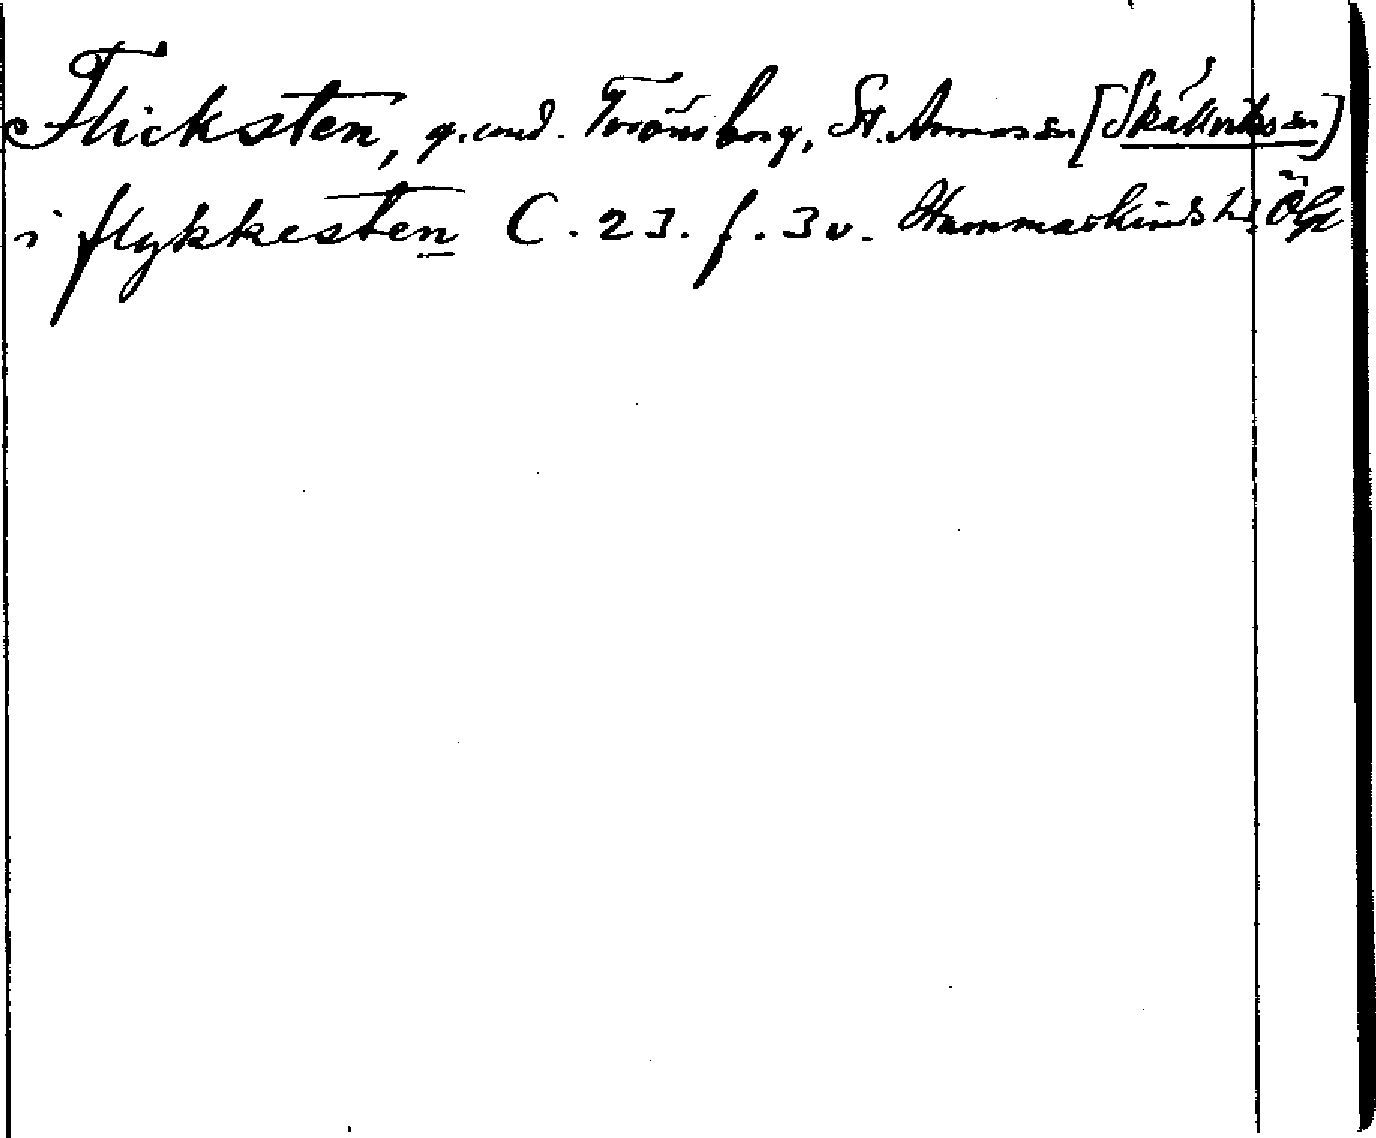 Flicksten, g. und. Thorönsborg, St. Annas sn [Skällviks sn]
i flykkesten C. 23. f. 3v. Hammarkinds hd Ögl